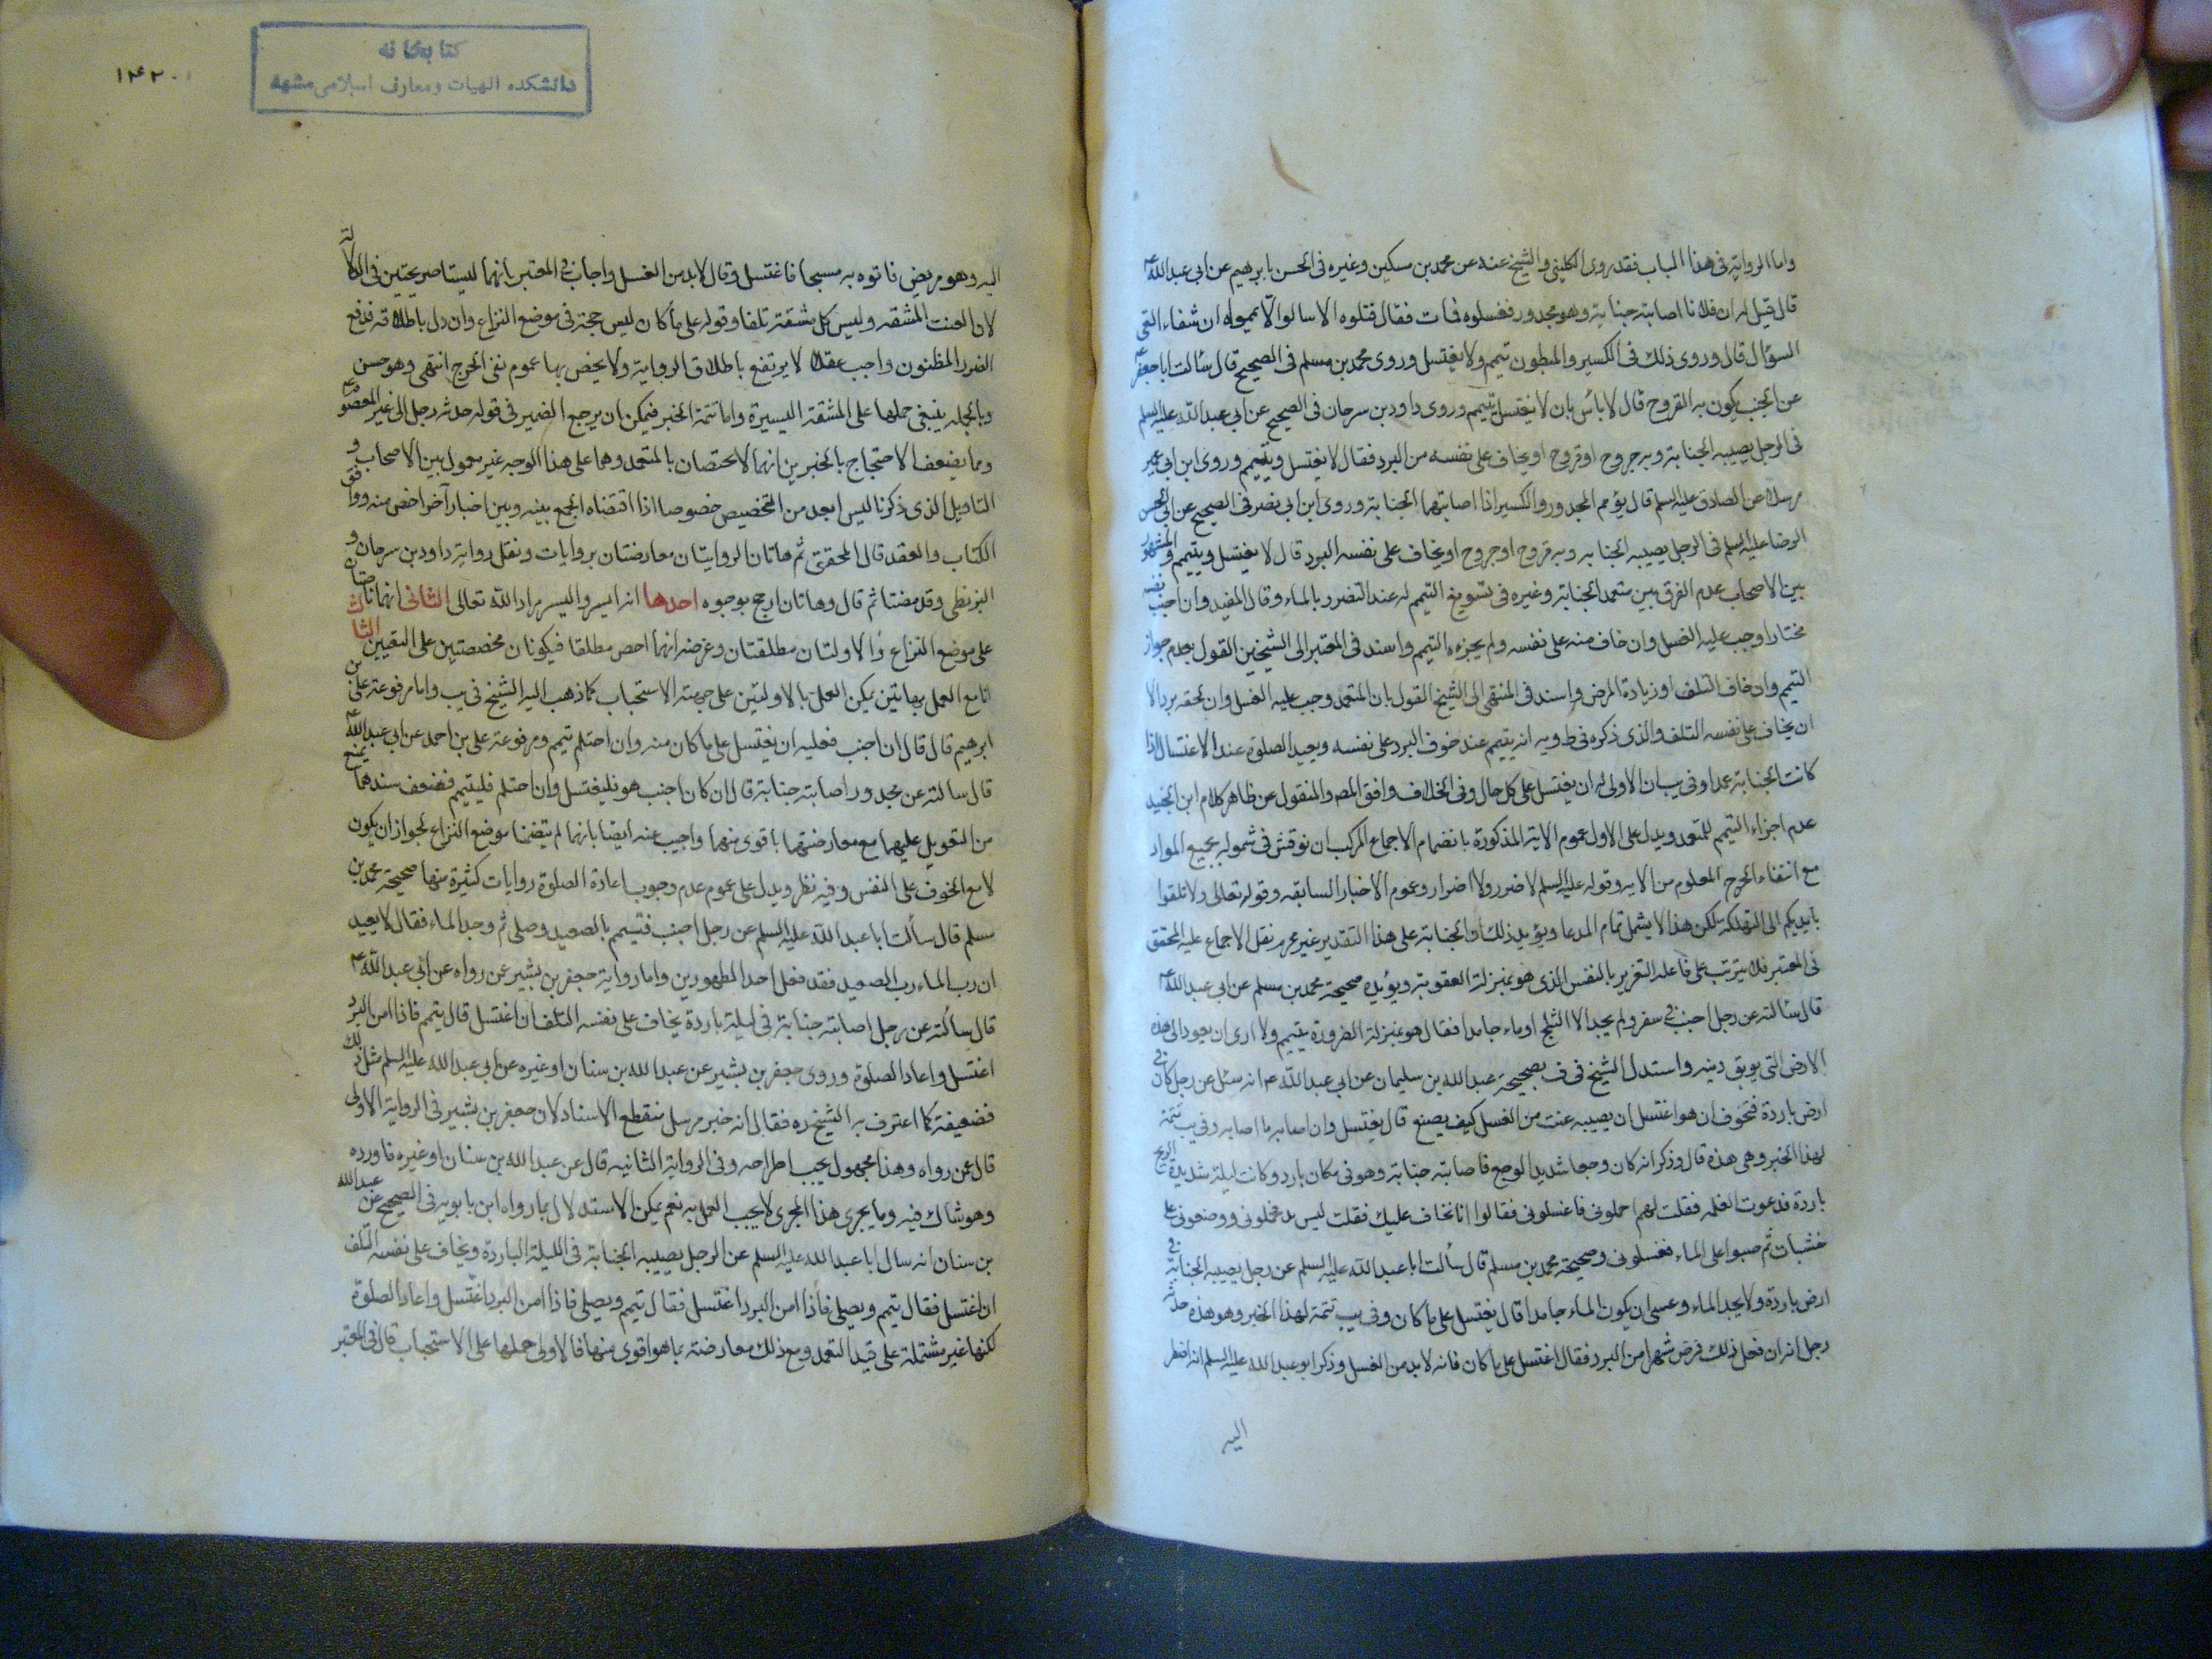 واما الرواية فى هذا الباب فقد روى الكلينى والشيخ عنه عن محمد بن مسكين وغيره فى الحسن بابرهيم عن ابى عبد الله ع
قال قيل له ان فلانا اصابته جنابة وهو مجدور فغسلوه فمات فقال قتلوه الا سالوا الا يمموه ان شفاء العى
السؤال قال وروى ذلك فى الكسير والمبطون تيمم ولا يغتسل وروى محمد بن مسلم فى الصحيح قال سألت ابا جعفر ع
عن الجنب يكون به القروح قال لا بأس بان لا يغتسل يتيمم وروى داود بن سرحان فى الصحيح عن ابى عبد الله عليه السلم
فى الرجل يصيبه الجنابة وبه جروح او قروح او يخاف على نفسه من البرد فقال لا يغتسل ويتيمم وروى ابن ابى عمير
مرسلا عن الصادق عليه السلم قال يؤمم المجدور والكسير اذا اصابتهما الجنابة وروى ابن ابى نصر فى الصحيح عن ابى الحسن
الرضا عليه السلم فى الرجل يصيبه الجنابه وبه قروح او جروح او يخاف على نفسه البرد قال لا يغتسل ويتيمم والمشهور
بين الاصحاب عدم الفرق بين متعمد الجنابة وغيره فى تسويغ التيمم له عند التضرر بالماء وقال المفيد وان اجنب نفسه
مختارا وجب عليه الغسل وان خاف منه على نفسه ولم يجزءه التيمم واسند فى المعتبر الى الشيخين القول بعدم جواز
التيمم وان خاف التلف او زيادة المرض واسند فى المنتهى الى الشيخ القول بان المتعمد وجب عليه الغسل وان لحقه برد الا
ان يخاف على نفسه التلف والذى ذكره فى ط ويه انه يتيمم عند خوف البرد على نفسه ويعيد الصلوة عند الاغتسال اذا
كانت الجنابة عمدا وفى يب ان الاولى له ان يغتسل على كل حال وفى الخلاف وافق المصـ والمنقول عن ظاهر كلام ابن الجنيد
عدم اجزاء التيمم للمتعمد ويدل على الاول عموم الاية المذكورة بانضمام الاجماع المركب ان نوقش فى شموله بجميع المواد
مع انتفاء الحرج المعلوم من الايه وقوله عليه السلم لا ضرر ولا اضرار وعموم الاخبار السابقه وقوله تعالى ولا تلقوا
بايديكم الى التهلكة لكن هذا لا يشمل تمام المدعا ويؤيد ذلك ان الجنابة على هذا التقدير غير محرم نقل الاجماع عليه المحقق
فى المعتبر فلا يترتب على فاعله التغرير بالنفس الذى هو بمنزلة العقوبة ويؤيده صحيحة محمد بن مسلم عن ابى عبد الله ع
قال سئالته عن رجل اجنب فى سفر ولم يجد الا الثلج او ماء جامدا فقال هو بمنزلة الضرورة يتيمم ولا ارى ان يعود الى هذه
الارض التى يوبق دينه واستدل الشيخ فى ف بصحيحة عبد الله بن سليمان عن ابى عبد الله ع انه سئل عن رجل كان فى
ارض باردة فتخوف ان هو اغتسل ان يصيبه عنت من الغسل كيف يصنع قال يغتسل وان اصابه ما اصابه وفى يب تتمة
لهذا الخبر وهى هذه قال وذكر انه كان وجعا شديد الوجع فاصابته جنابة وهو فى مكان بارد وكانت ليلة شديدة الريح
باردة فدعوت الغلمه فقلت لهم احملونى فاغسلونى فقالوا انا نخاف عليك فقلت ليس بد فحملونى ووضعونى على
خشبات ثم صبوا على الماء فغسلونى وصحيحة محمد بن مسلم قال سألت ابا عبد الله عليه السلم عن رجل يصيبه الجنابة فى
ارض باردة ولا يجد الماء وعسى ان يكون الماء جامدا قال يغتسل على ما كان وفى يب تتمة لهذا الخبر وهو هذه حدثه
رجل انه ان فعل ذلك فرض شهرا من البرد فقال اغتسل على ما كان فانه لا بد من الغسل وذكر ابو عبد الله عليه السلم انه اضطر
اليه
كتابخانه
دانشكده الهيات ومعارف اسلامى مشهد
اليه وهو مريض فاتوه به مسبحا فاغتسل وقال لا بد من الغسل واجاب فى المعتبر بانهما ليستا صريحتين فى الدلالة
لان العنت المشقه وليس كل مشقة تلفا وقوله على ما كان ليس حجة فى موضع النزاع وان دل باطلاقه فدفع
الضرر المظنون واجب عقلا لا يرتفع باطلاق الرواية ولا يخص بها عموم نفى الحرج انتهى وهو حسن
وبالجمله ينبغى حملها على المشقة اليسيرة واما تتمة الخبر فيمكن ان يرجع الضمير فى قوله حدثه رجل الى غير المعصوم ع
ومما يضعف الاحتجاج بالخبرين انهما لا يختصان بالمتعمد وهما على هذا الوجه غير معمول بين الاصحاب و
التاويل الذى ذكرنا ليس ابعد من التخصيص خصوصا اذا اقتضاه الجمع بينه وبين اخبار آخر اخص منه ووافق
الكتاب والعقد قال المحقق ثم هاتان الروايتان معارضتان بروايات ونقل رواية داود بن سرحان و
البزنطى وقد مضتا ثم قال وهاتان ارجح بوجوه احدها انه ايسر واليسر مراد الله تعالى الثانى انهما ناصتان
على موضع النزاع والاولتان مطلقتان وغرضه انهما اخص مطلقا فيكونان مخصصتين على التعيين الثالث
انا مع العمل بهاتين يمكن العمل بالاولتين على جهة الاستحباب كما ذهب اليه الشيخ فى يب واما مرفوعة على بن
ابرهيم قال قال ان اجنب فعليه ان يغتسل على ما كان منه وان احتلم تيمم ومرفوعة على بن احمد عن ابى عبد الله ع
قال سالته عن مجدور اصابته جنابة قال ان كان اجنب هو فليغتسل وان احتلم فليتيمم فضعف سندهما يمنع
من التعويل عليهما مع معارضتهما باقوى منهما واجيب عنه ايضا بانهما لم يتضمنا موضع النزاع لجواز ان يكون
لا مع الخوف على النفس وفيه نظر ويدل على عموم عدم وجوب اعادة الصلوة روايات كثيرة منها صحيحة محمد بن
مسلم قال سألت ابا عبد الله عليه السلم عن رجل اجنب فتيمم بالصعيد وصلى ثم وجد الماء فقال لا يعيد
ان رب الماء رب الصعيد فقد فعل احد المطهورين واما رواية جعفر بن بشير عن رواه عن ابى عبد الله ع
قال سألته عن رجل اصابته جنابة فى ليلة باردة يخاف على نفسه التلف ان اغتسل قال يتيمم فاذا امن البرد
اغتسل واعاد الصلوة وروى جعفر بن بشير عن عبد الله بن سنان او غيره عن ابى عبد الله عليه السلم مثل ذلك
فضعيفة كما اعترف به الشيخ ره فقال انه خبر مرسل منقطع الاسناد لان جعفر بن بشير فى الرواية الاولى
قال عن رواه وهذا مجهول يجب اطراحه وفى الرواية الثانيه قال عن عبد الله بن سنان او غيره فاورده
وهو شاك فيه وما يجرى هذا المجرى لا يجب العمل به نعم يمكن الاستدلال بما رواه ابن بابويه فى الصحيح عن عبد الله
بن سنان انه سال ابا عبد الله عليه السلم عن الرجل يصيبه الجنابة فى الليلة الباردة ويخاف على نفسه التلف
ان اغتسل فقال تيمم ويصلى فاذا امن البرد اغتسل فقال تيمم ويصلى فاذا امن البرد اغتسل واعاد الصلوة
لكنها غير مشتملة على قيد التعمد ومع ذلك معارضة بما هو اقوى منها فالاولى حملها على الاستحباب قال فى المعتبر